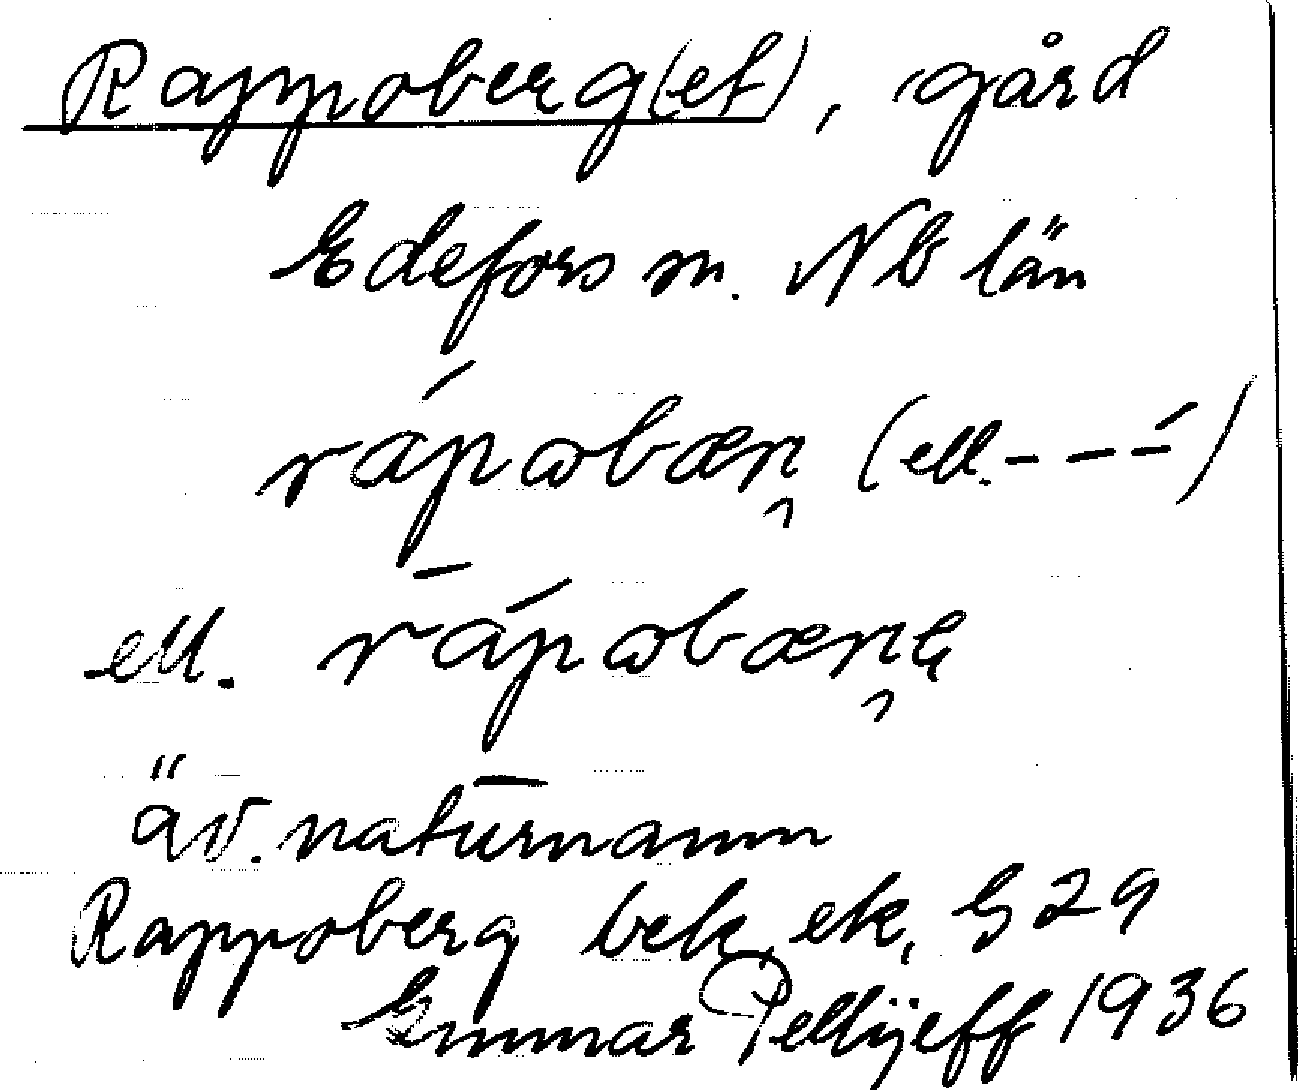 Rappoberg(et), gård
Edefors sn. Nb län
rápωbæn̯ (ell. - - -́)
ell. rápωbæn̯
äv. naturnamn
Rappoberg bek, ek,
Gunnar Pellijeff 1936